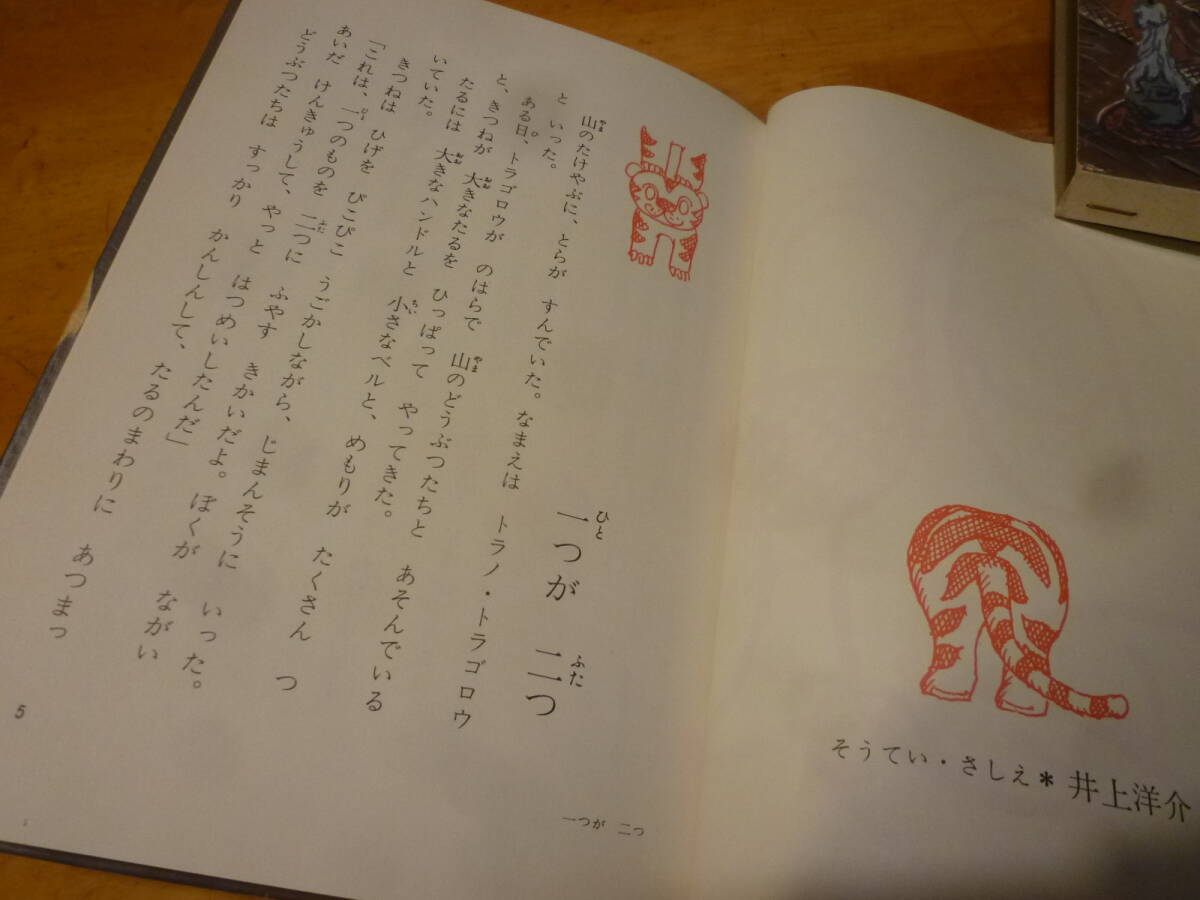 そうてい・さしえ*井上洋介
一つが 二つ
ひと
ふた
山のたけやぶに、とらが すんでいた。なまえは トラノ・トラゴロウ
と いった。
ある日、トラゴロウが のはらで 山のどうぶつたちと あそんでいる
と、きつねが 大きなたるを ひっぱって やってきた。
たるには 大きなハンドルと 小さなベルと、めもりが たくさん つ
いていた。
きつねは ひげを ぴこぴこ うごかしながら、じまんそうに いった。
「これは、一つのものを 二つに ふやす きかいだよ。ぼくが ながい
あいだ けんきゅうして、やっと はつめいしたんだ」
どうぶつたちは すっかり かんしんして、たるのまわりに あつまっ
一つが 二つ
5